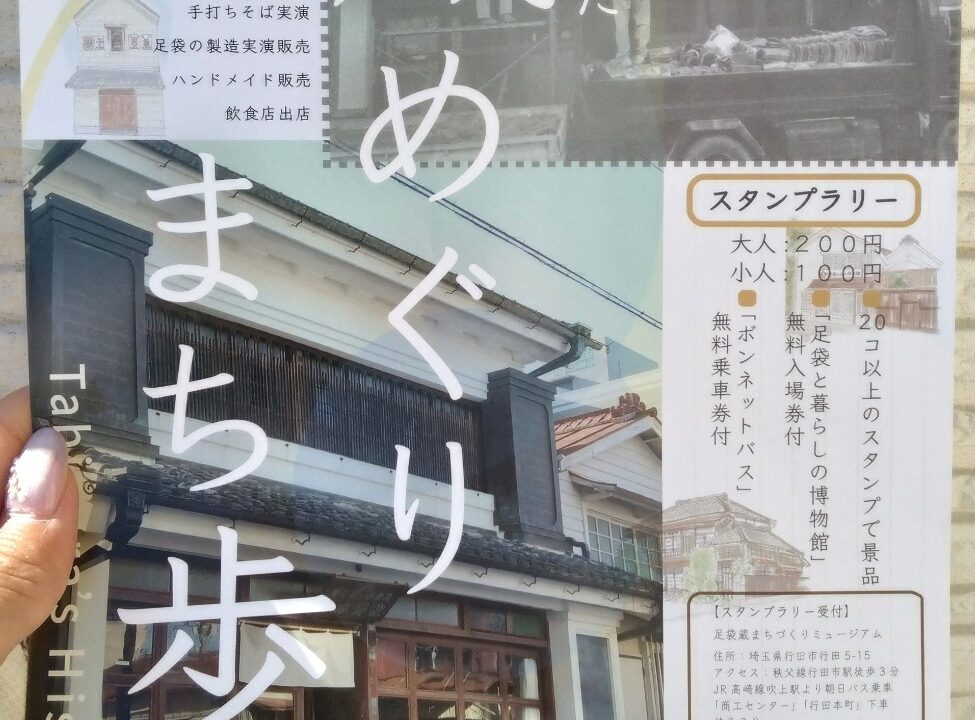 手打ちそば実演
足袋の製造実演販売
ハンドメイド販売
飲食店出店
めぐり
まち歩
スタンプラリー
大人：２００円
小人：１００円
20コ以上のスタンプで景品
「足袋と暮らしの博物館」
無料入場券付
「ボンネットバス」
無料乗車券付
【スタンプラリー受付】
足袋蔵まちづくりミュージアム
住所：埼玉県行田市行田5-15
アクセス：秩父線行田市駅徒歩３分
JR高崎線吹上駅より朝日バス乗車
「商工センター」「行田本町」下車
's His